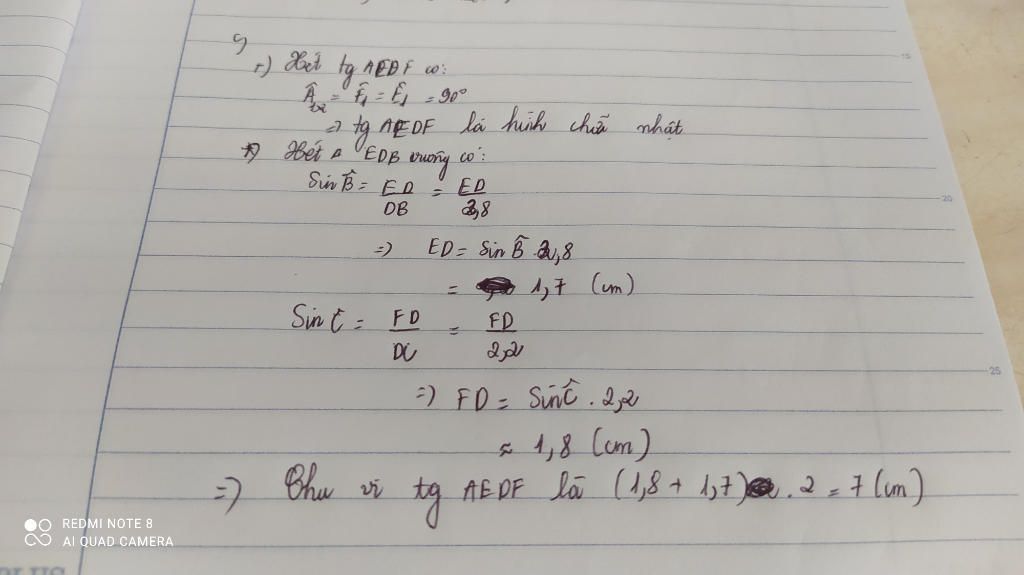 c)
+) Xét tg AEDF có:
Â = F̂₁ = Ê₁ = 90°
=> tg AEDF là hình chữ nhật
*) Xét Δ EDB vuông có:
Sin B̂ = ED/DB = ED/2,8
=> ED = Sin B̂ . 2,8
= 1,7 (cm)
Sin Ĉ = FD/DC = FD/2,2
=> FD = Sin Ĉ . 2,2
≈ 1,8 (cm)
=> Chu vi tg AEDF là (1,8 + 1,7) . 2 = 7 (cm)
15
20
25
REDMI NOTE 8
AI QUAD CAMERA